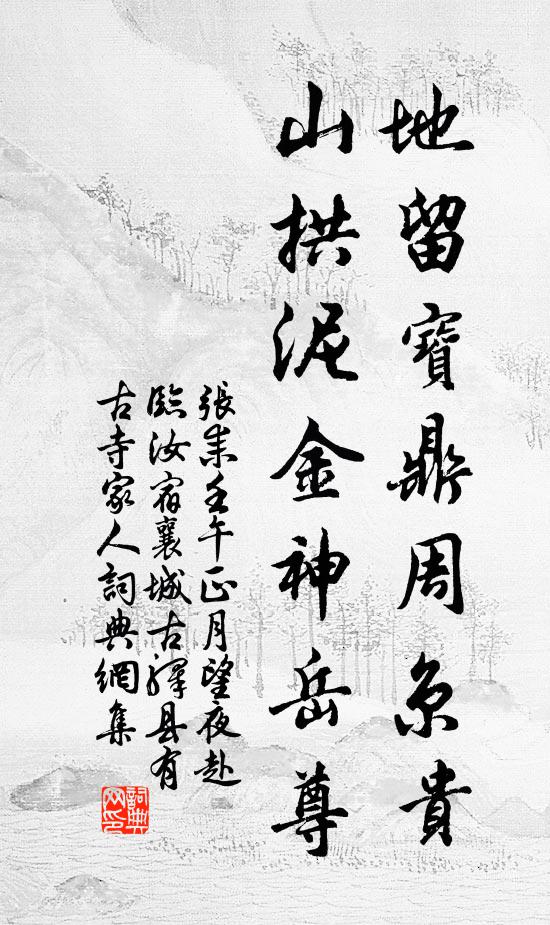 地留寶鼎周京貴
山拱泥金神岳尊
張耒壬午正月望夜赴
臨汝宿襄城古驛县有
古寺家人詞典網集
詞典网印